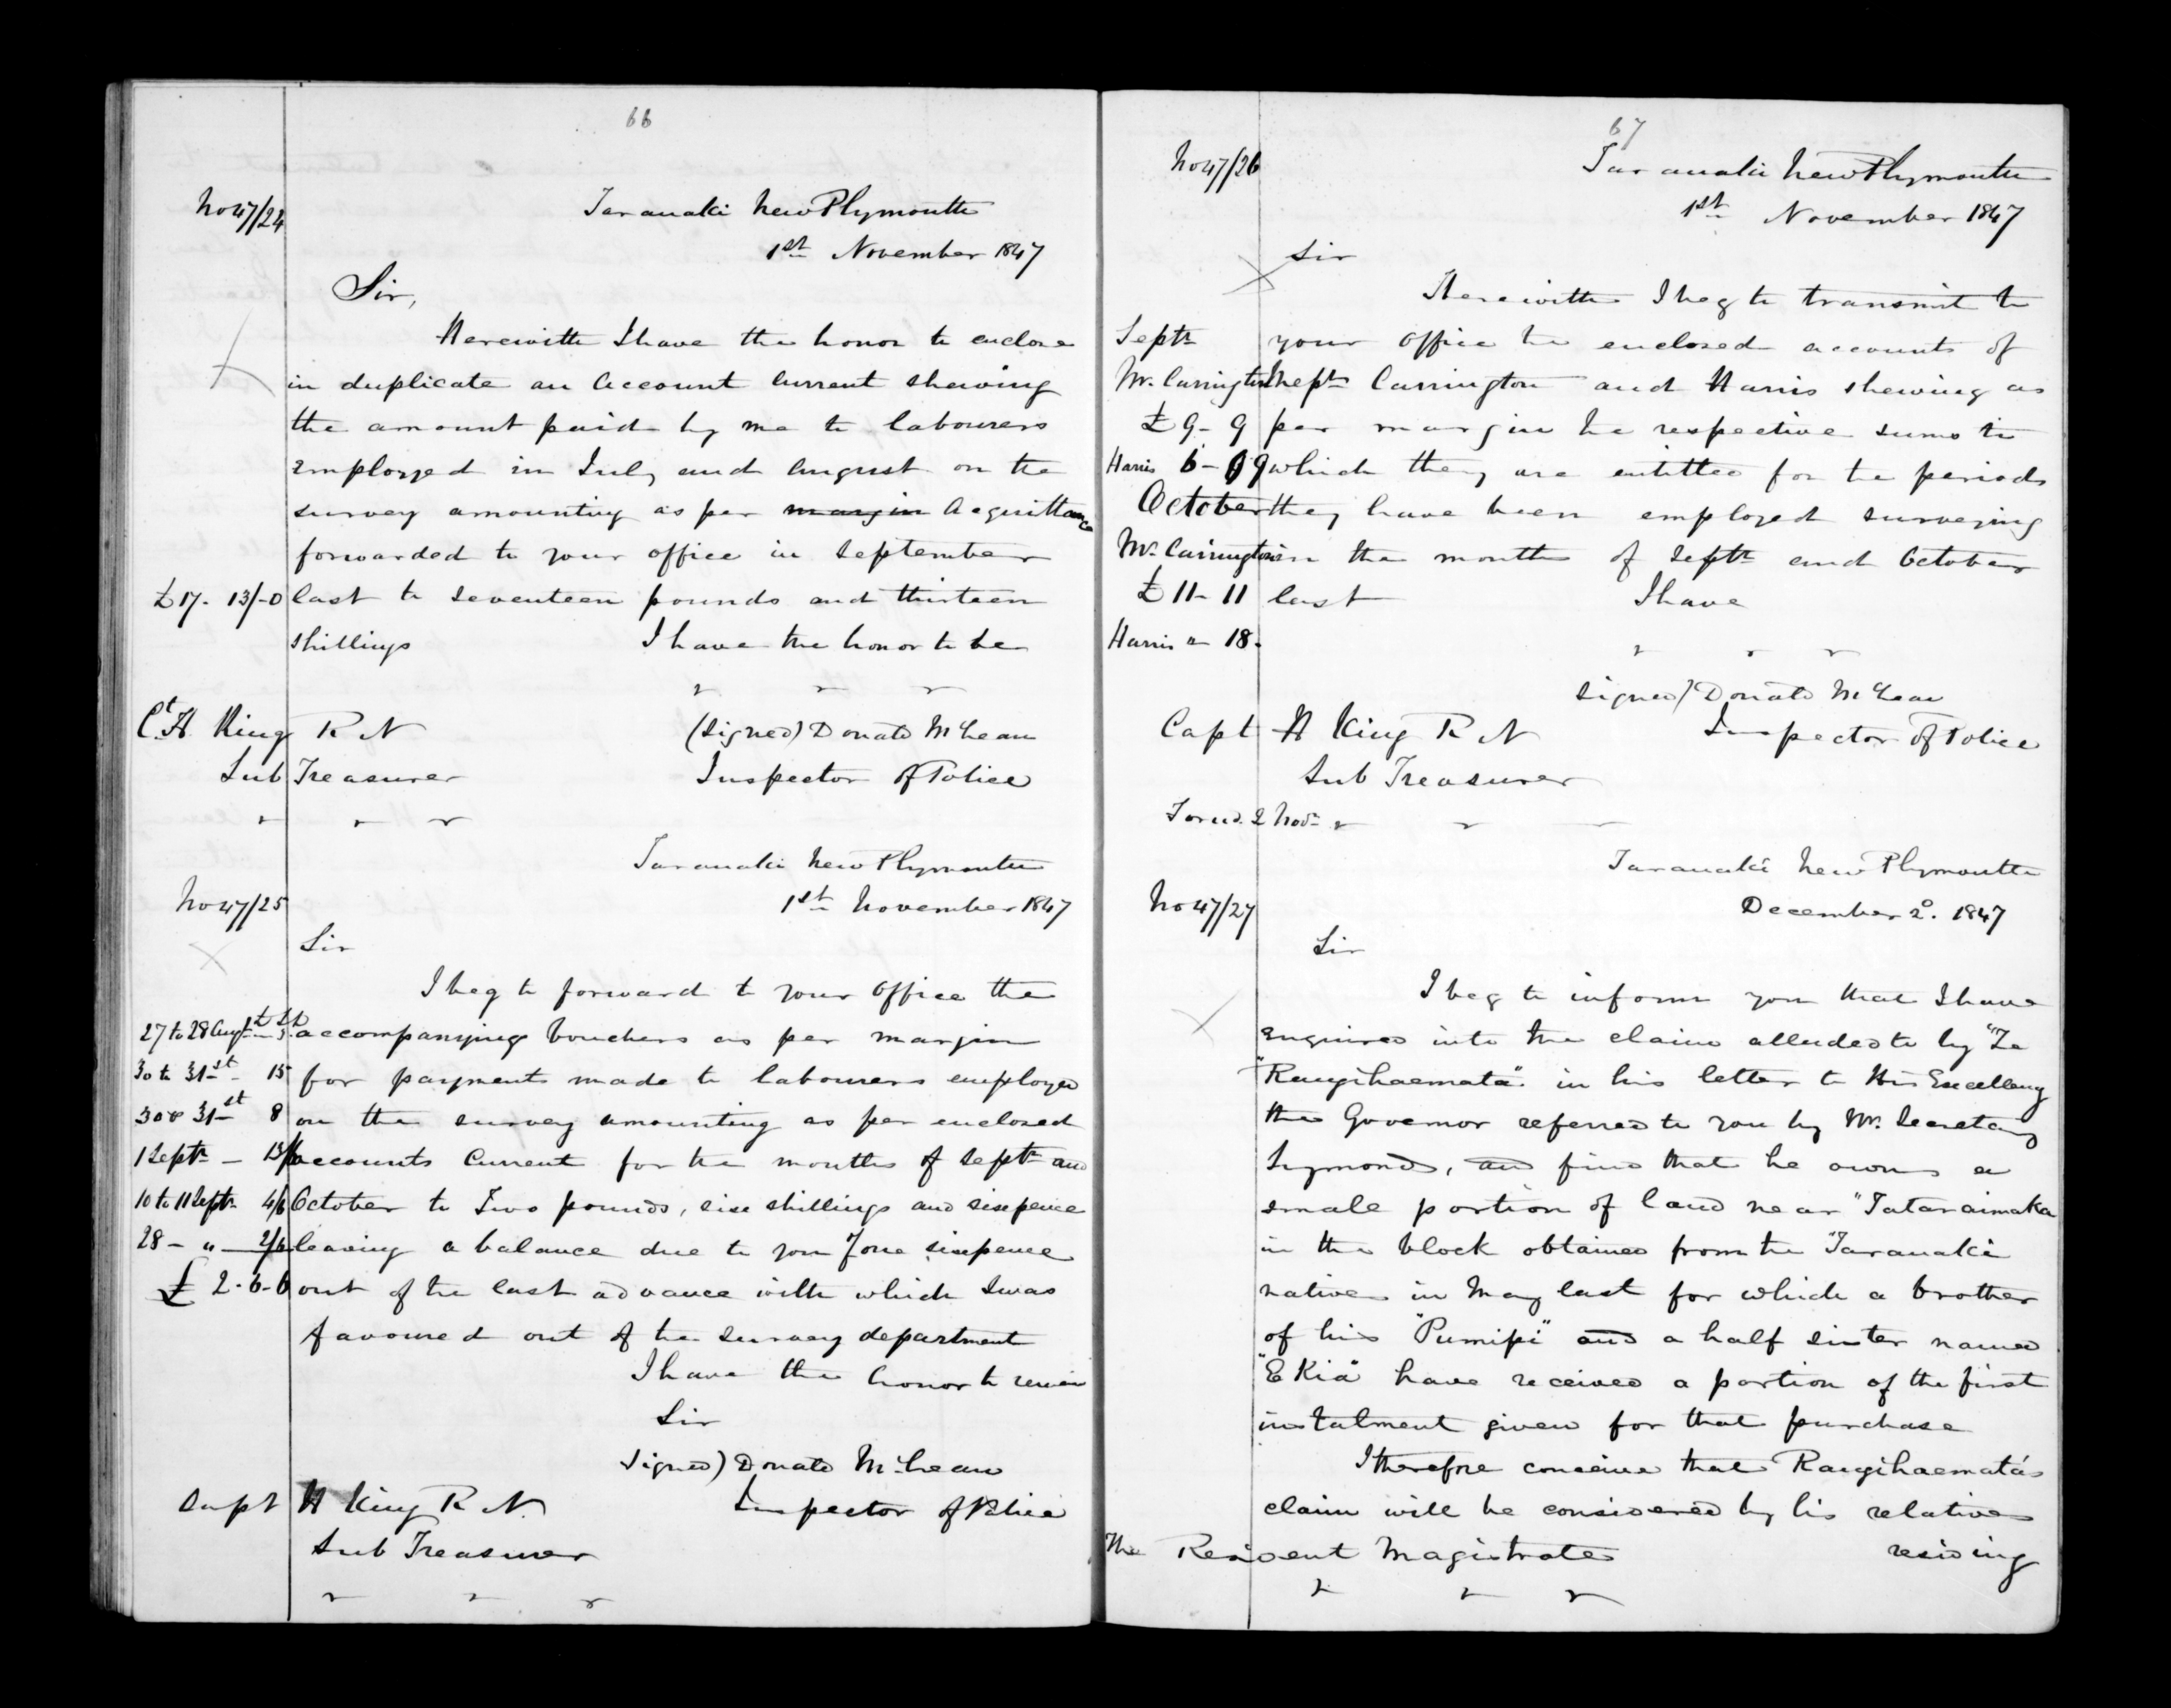 66
No 47/24
Taranaki New Plymouth
1st November 1847
Sir,
Herewith I have the honor to enclose
in duplicate an account current shewing
the amount paid by me to labourers
employed in July and August on the
survey amounting as per margin Acquittance
forwarded to your office in September
£17. 13/-0 last to seventeen pounds and thirteen
shillings I have the honor to be
" " "
Ct. H. King R N (Signed) Donald McLean
Sub Treasurer Inspector of Police
" " "
Taranaki New Plymouth
No 47/25 1st November 1847
Sir
I beg to forward to your office the
27 to 28 Augt accompanying vouchers as per margin
30 to 31st - 15 for payments made to labourers employed
30 & 31st 8 on the survey amounting as per enclosed
1 Septr - 13/6 accounts current for the months of Septr and
10 to 11 Septr 4/6 October to Two pounds, six shillings and sixpence
28 - " - 2/6 leaving a balance due to you of one sixpence
£ 2.6.6 out of the last advance with which I was
favoured out of the survey department
I have the honor to remain
Sir
Signed) Donald McLean
Capt H King R N. Inspector of Police
Sub Treasurer
" " "
67
No 47/26
Taranaki New Plymouth
1st November 1847
Sir
Herewith I beg to transmit to
Septr your office the enclosed accounts of
Mr. Carrington Messrs Carrington and Harris shewing as
£ 9-9 per margin the respective sums to
Harris 6-09 which they are entitled for the periods
October they have been employed surveying
Mr. Carrington in the months of Septr and October
£ 11-11 last I have
Harris " 18.
" " "
Signed) Donald McLean
Capt H King R N Inspector of Police
Sub Treasurer
Forwd. 2 Novr " " "
Taranaki New Plymouth
No 47/27 December 2d. 1847
Sir
I beg to inform you that I have
enquired into the claim alluded to by "Te
"Rangihaemata" in his letter to His Excellency
the Governor referred to you by Mr. Secretary
Symonds, and find that he owns a
small portion of land near "Tataraimaka
in the block obtained from the Taranaki
natives in May last for which a brother
of his "Pumipi" and a half sister named
"E Kia" have received a portion of the first
instalment given for that purchase
I therefore conceive that Rangihaemata's
claim will be considered by his relatives
The Resident Magistrate residing
" " "